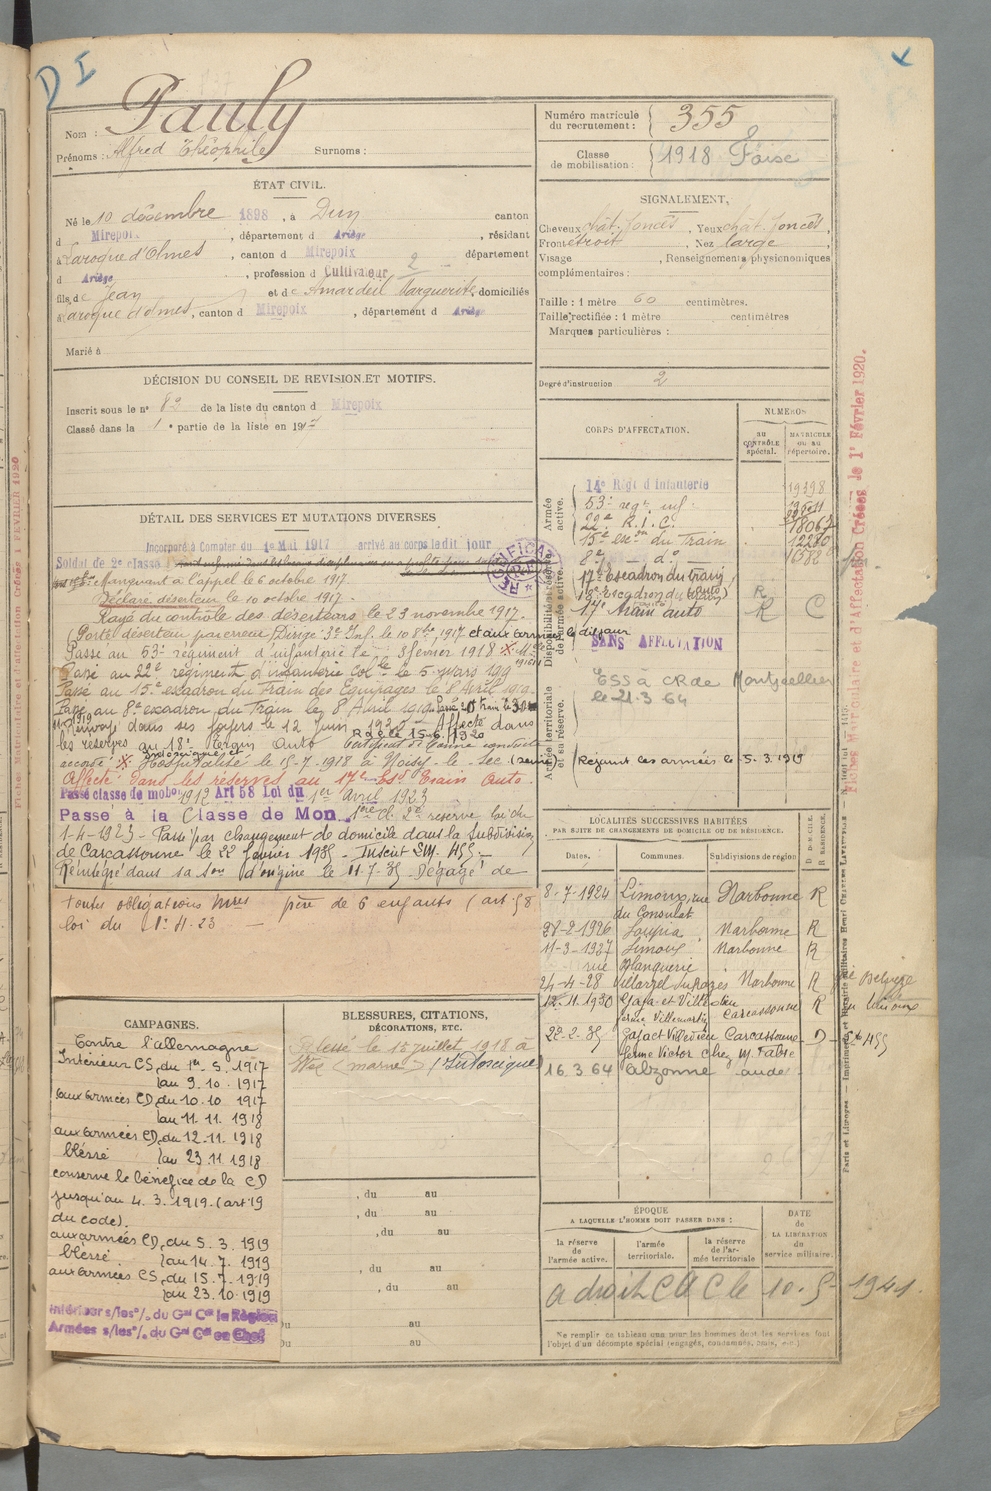 D I
Nom : Pauly
Prénoms : Alfred Théophile Surnoms :
Numéro matricule du recrutement : 355
Classe de mobilisation : 1918 Foix
ÉTAT CIVIL.
Né le 10 décembre 1898, à Dun canton
d Mirepoix, département d Ariège, résidant
à Laroque d'Olmes, canton d Mirepoix département
d Ariège, profession d Cultivateur 2
fils de Jean et de Amardeil Marguerite, domiciliés
à Laroque d'olmes, canton d Mirepoix, département d Ariège
Marié à
SIGNALEMENT,
Cheveux chât. foncés, Yeux chât. foncés,
Front étroit, Nez large,
Visage , Renseignements physionomiques
complémentaires :
Taille : 1 mètre 60 centimètres.
Taille rectifiée : 1 mètre centimètres
Marques particulières :
Degré d'instruction 2
DÉCISION DU CONSEIL DE REVISION ET MOTIFS.
Inscrit sous le n° 82 de la liste du canton d Mirepoix
Classé dans la 1e partie de la liste en 1917
DÉTAIL DES SERVICES ET MUTATIONS DIVERSES
Incorporé à Compter du 1e Mai 1917 arrivé au corps le dit jour
Soldat de 2e classe
Manquant à l'appel le 6 octobre 1917.
Déclaré déserteur le 10 octobre 1917.
Rayé du contrôle des déserteurs le 23 novembre 1917.
(Porté déserteur par erreur, Dirigé 3e Inf. le 10 8bre 1917 et aux armées le dit jour
Passé au 53e régiment d'infanterie le 3 février 1918
Passé au 22e régiment d'infanterie Colle le 5 mars 1919
Passé au 15e escadron du Train des Equipages le 8 Avril 1919.
Passé au 8e escadron du Train le 8 Avril 1919.
Renvoyé dans ses foyers le 12 Juin 1920 Affecté dans
R D C le 15-6-1920
les réserves au 18e Certificat de bonne conduite
accordé. Hospitalisé le 15-7-1918 à Noisy-le-Sec (Seine)
Affecté dans les réserves au 17e Esd Train Auto.
Passé classe de mobon 1912 Art 58 Loi du 1er Avril 1923
Passé à la Classe de Mon 1ère de 2e réserve loi du
1-4-1923 - Passé par changement de domicile dans la Subdivision
de Carcassonne le 22 février 1935 - Inscrit SM. 455 -
Réintégré dans sa son d'origine le 11-7-35 Dégagé de
toutes obligations mres père de 6 enfants (art 58
loi du 1er 4. 23 -
CORPS D'AFFECTATION.
NUMÉROS
au CONTRÔLE spécial.
MATRICULE ou au répertoire.
Armée active.
14e Régt d'Infanterie 19398
53e regt inf.
22e R.I.C. 18067
15e escon du Train 12280
8e do 16582
Disponibilité et réserve de l'armée active.
17e Escadron du train
17e Train auto R C
SANS AFFECTATION
Armée territoriale et sa réserve.
ESS à CR de Montpellier
le 21.3 64
(Rejoint les armées le 5. 3. 1919
LOCALITÉS SUCCESSIVES HABITÉES
PAR SUITE DE CHANGEMENTS DE DOMICILE OU DE RÉSIDENCE.
Dates. Communes. Subdivisions de région D. DOMICILE. R. RÉSIDENCE.
8-7-1924 Limoux, rue Narbonne R
du Consulat
28-2-1926 Loupia Narbonne R
11-3-1927 Limoux Narbonne R
rue Blanquerie
24-4-28 Villarzel du Razès Narbonne R
12-11-1930 Gaja et Villedieu Carcassonne R
22-2-35 Gaja et Villedieu Carcassonne D
ferme Victor chez M. Fabre
16 3 64 Alzonne aude
CAMPAGNES.
Contre l'allemagne
Intérieur CS, du 1er 5. 1917
au 9. 10. 1917
aux armées CD, du 10. 10 1917
au 11. 11. 1918
aux armées CD, du 12. 11. 1918
blessé au 23 11. 1918
conserve le bénéfice de la CD
jusqu'au 4. 3. 1919. (art 19
du code).
aux armées CD, du 5. 3. 1919
blessé au 14. 7. 1919
aux armées CS, du 15. 7. 1919
au 23. 10. 1919
Intérieur s/les% du Gal Ct la Région
Armées s/les% du Gal Ct en Chef
BLESSURES, CITATIONS,
DÉCORATIONS, ETC.
Blessé le 15 juillet 1918 à
(marne) (Intoxiqué)
, du au
, du au
, du au
, du au
, du au
Du au
Du au
ÉPOQUE
A LAQUELLE L'HOMME DOIT PASSER DANS :
la réserve de l'armée active.
l'armée territoriale.
la réserve de l'armée territoriale
DATE de LA LIBÉRATION du service militaire.
a droit C A C le 10. 5- 1941.
Ne remplir ce tableau que pour les hommes dont les services font
l'objet d'un décompte spécial (engagés, condamnés, omis, etc.)
Fiches Matriculaire et d'Affectation Créées le 1r Février 1920.